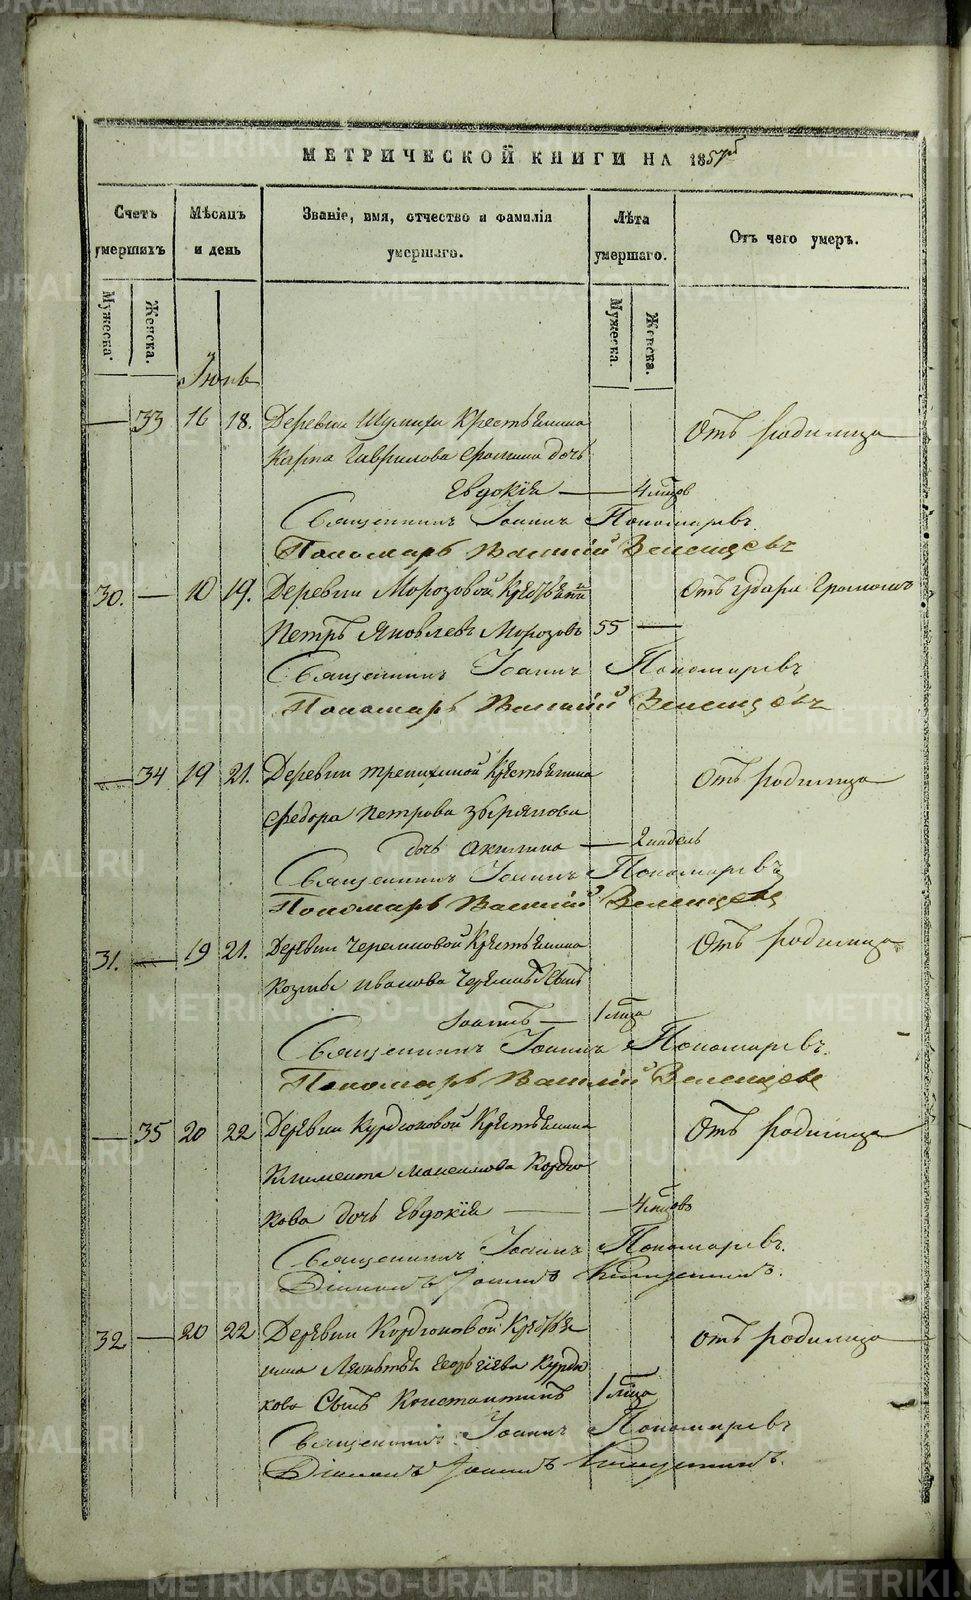 МЕТРИЧЕСКОЙ КНИГИ НА 1857й
Счетъ умершихъ
Мѣсяцъ и день
Званіе, имя, отчество и фамилія умершаго.
Лѣта умершаго.
Отъ чего умеръ.
Мужеска.
Женска.
Мужеска.
Женска.
Іюнь
— 33 16 18. Деревни Шумихи Крестьянина Отъ родимца
Карпа Гаврилова дочь
Евдокія — 4 мцовъ
Священникъ Іоаннъ Пономаревъ
Пономарь Василій Зеленцовъ
30. — 10 19. Деревни Морозовой Крестьянинъ Отъ удара
Петръ Яковлевъ Морозовъ 55 —
Священникъ Іоаннъ Пономаревъ
Пономарь Василій Зеленцовъ
— 34 19 21. Деревни Крестьянина Отъ родимца
Федора Петрова Зырянова
дочь Акилина — 2 недель
Священникъ Іоаннъ Пономаревъ
Пономарь Василій Зеленцовъ
31. — 19 21. Деревни Черемновой Крестьянина Отъ родимца
Козмы Иванова сынъ
Іоаннъ — 1 мца
Священникъ Іоаннъ Пономаревъ.
Пономарь Василій Зеленцовъ
— 35 20 22 Деревни Курдюковой Крестьянина Отъ родимца
Климента Максимова Кордю
кова дочь Евдокія — 4 мцовъ
Священникъ Іоаннъ Пономаревъ.
Діаконъ Іоаннъ
32 — 20 22 Деревни Кордюковой Крестья Отъ родимца
нина Георгіева Курдю
кова Сынъ Константинъ 1 мца
Священникъ Іоаннъ Пономаревъ
Діаконъ Іоаннъ
METRIKI.GASO-URAL.RU